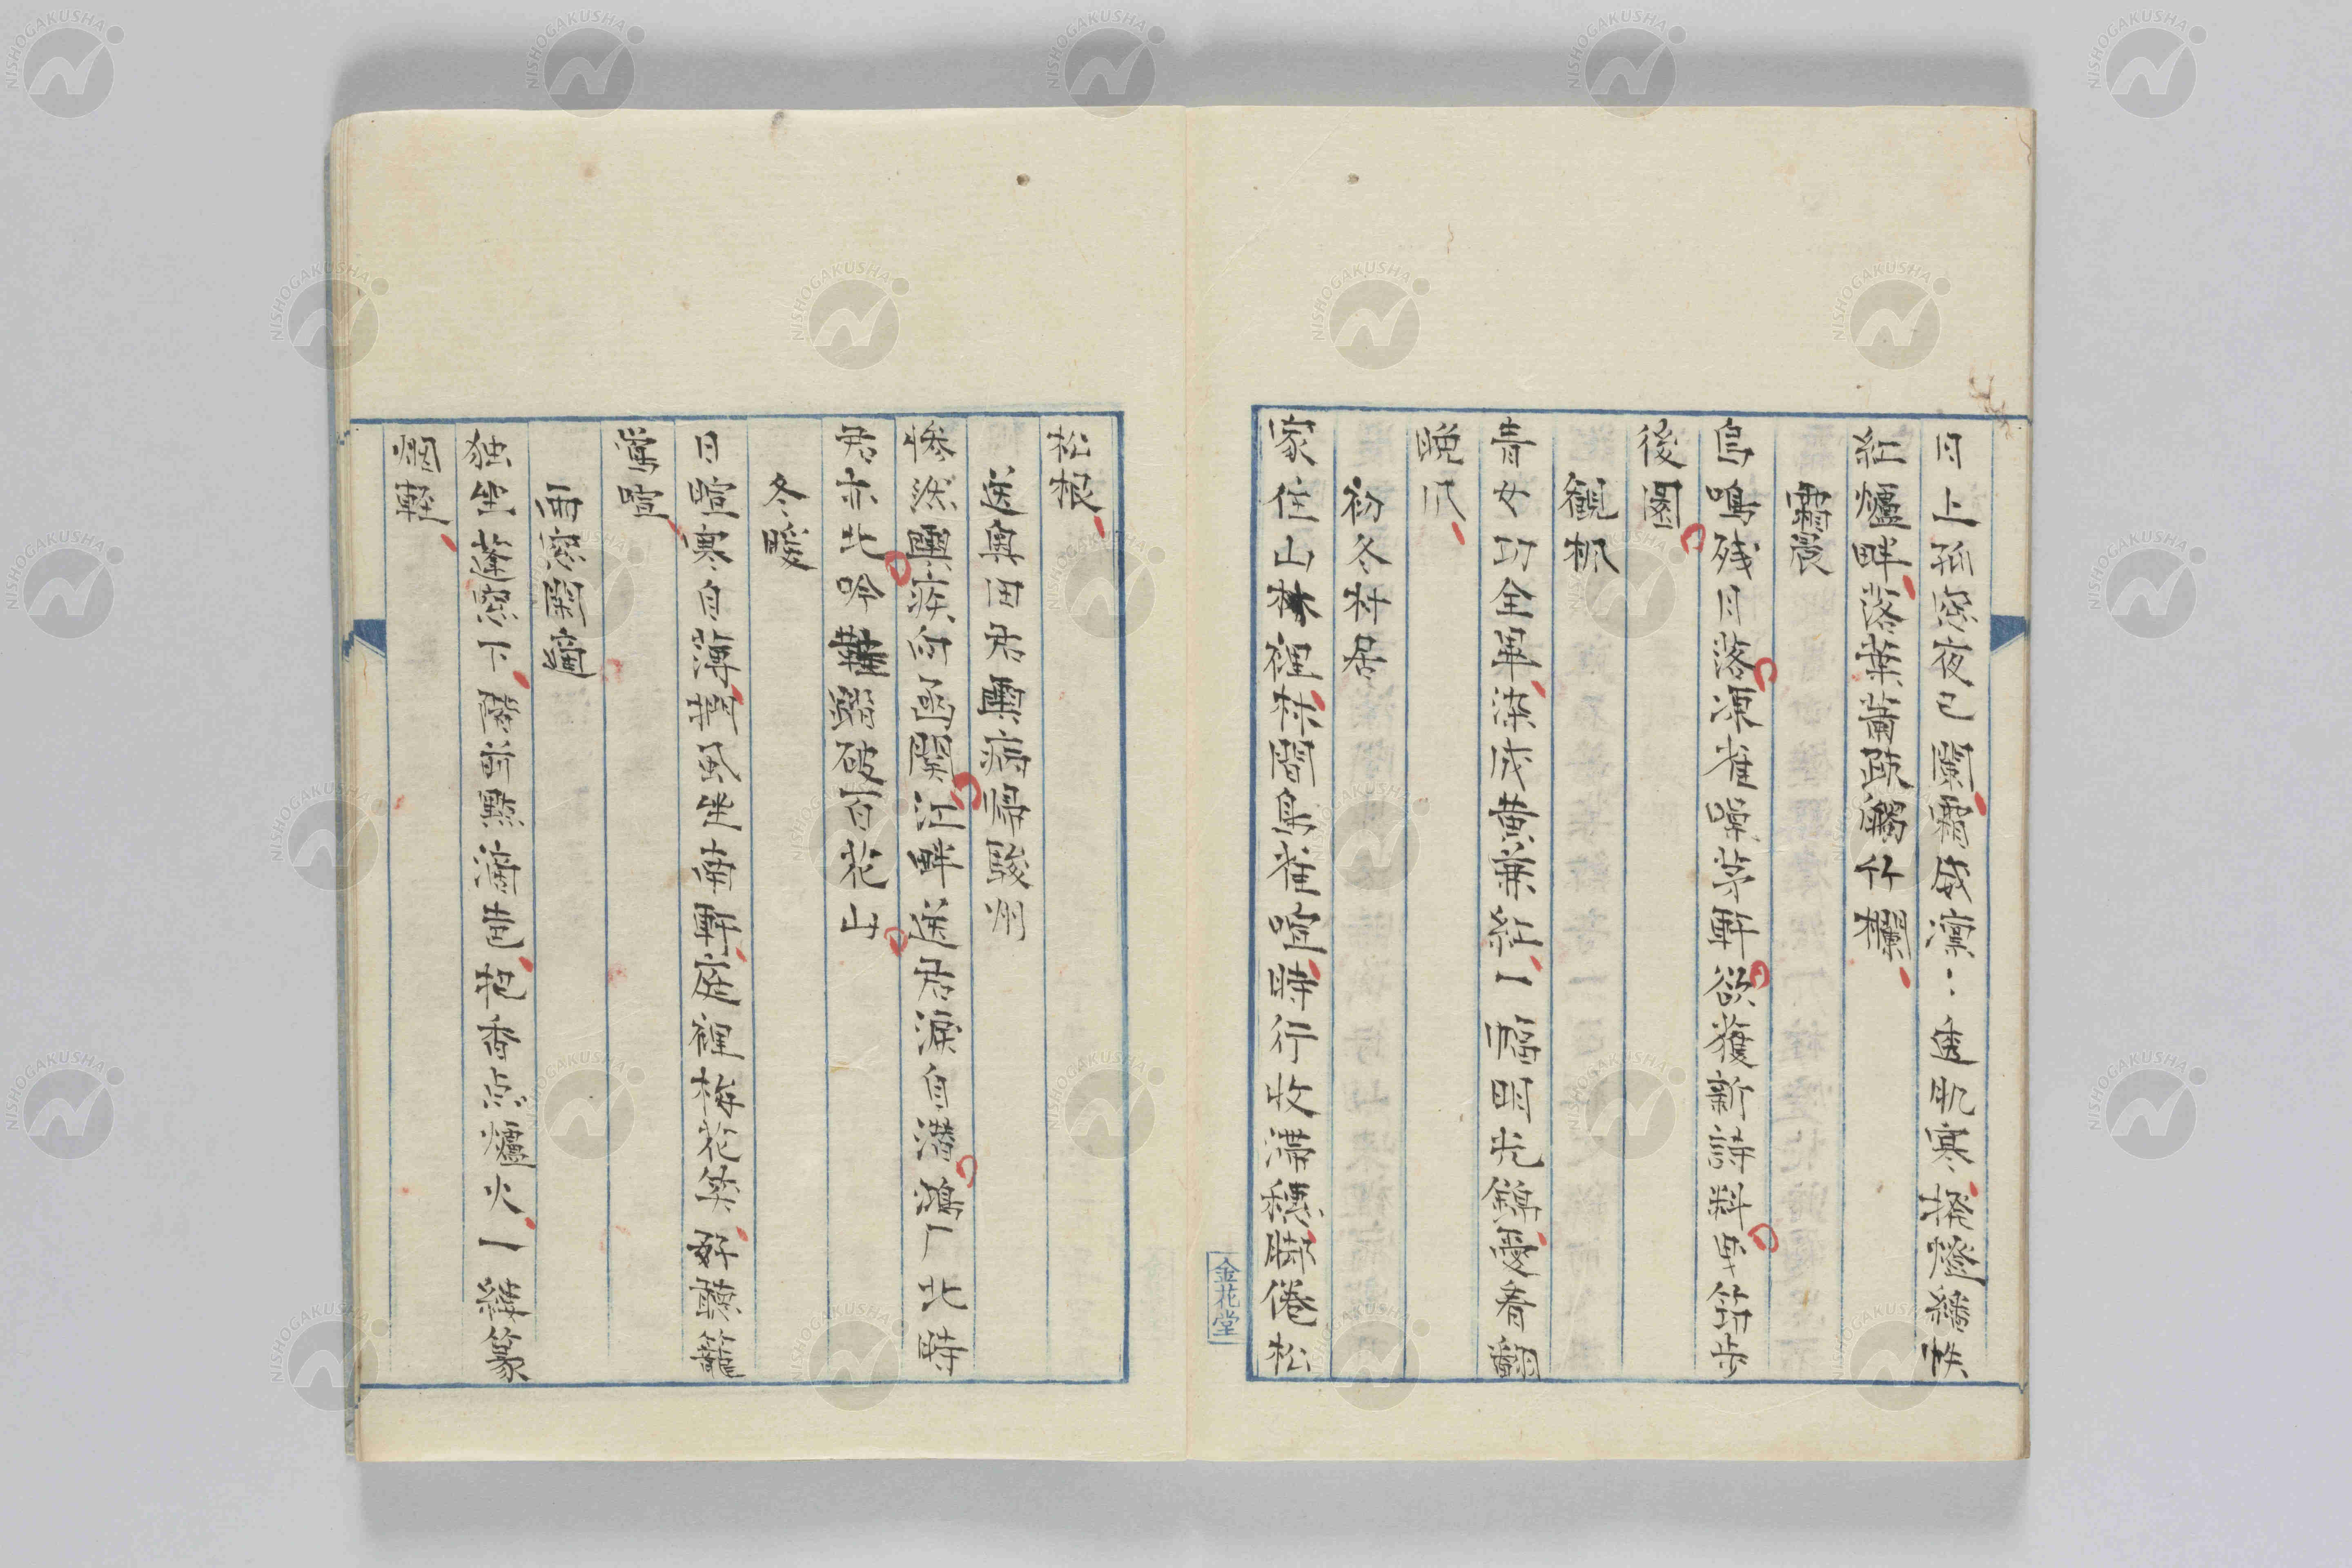 月上孤窓夜已闌霜威凛〻透肌寒撥燈繙帙
紅爐畔落葉蕭疎觸竹欄
霜晨
烏鳴残月落凍雀噪茅軒欲獲新詩料弄笻歩
後園
観楓
青女功全畢染成黄葉紅一幅明光錦段看翻
晩風
初冬村居
家住山林裡林間鳥雀喧時行收滞穂時倦松
金花堂
松根
送奥田君輿病帰駿州
惨然輿疾向函関江畔送君涙自潸鴻厂北時
君亦北吟鞋踏破百花山
冬暖
日喧寒自薄擁風坐南軒庭裡梅花笑好聽籠
鶯喧
雨窓閑適
独坐蓬窓下閑前點滴声把香点爐火一縷篆
烟軽
NISHOGAKUSHA